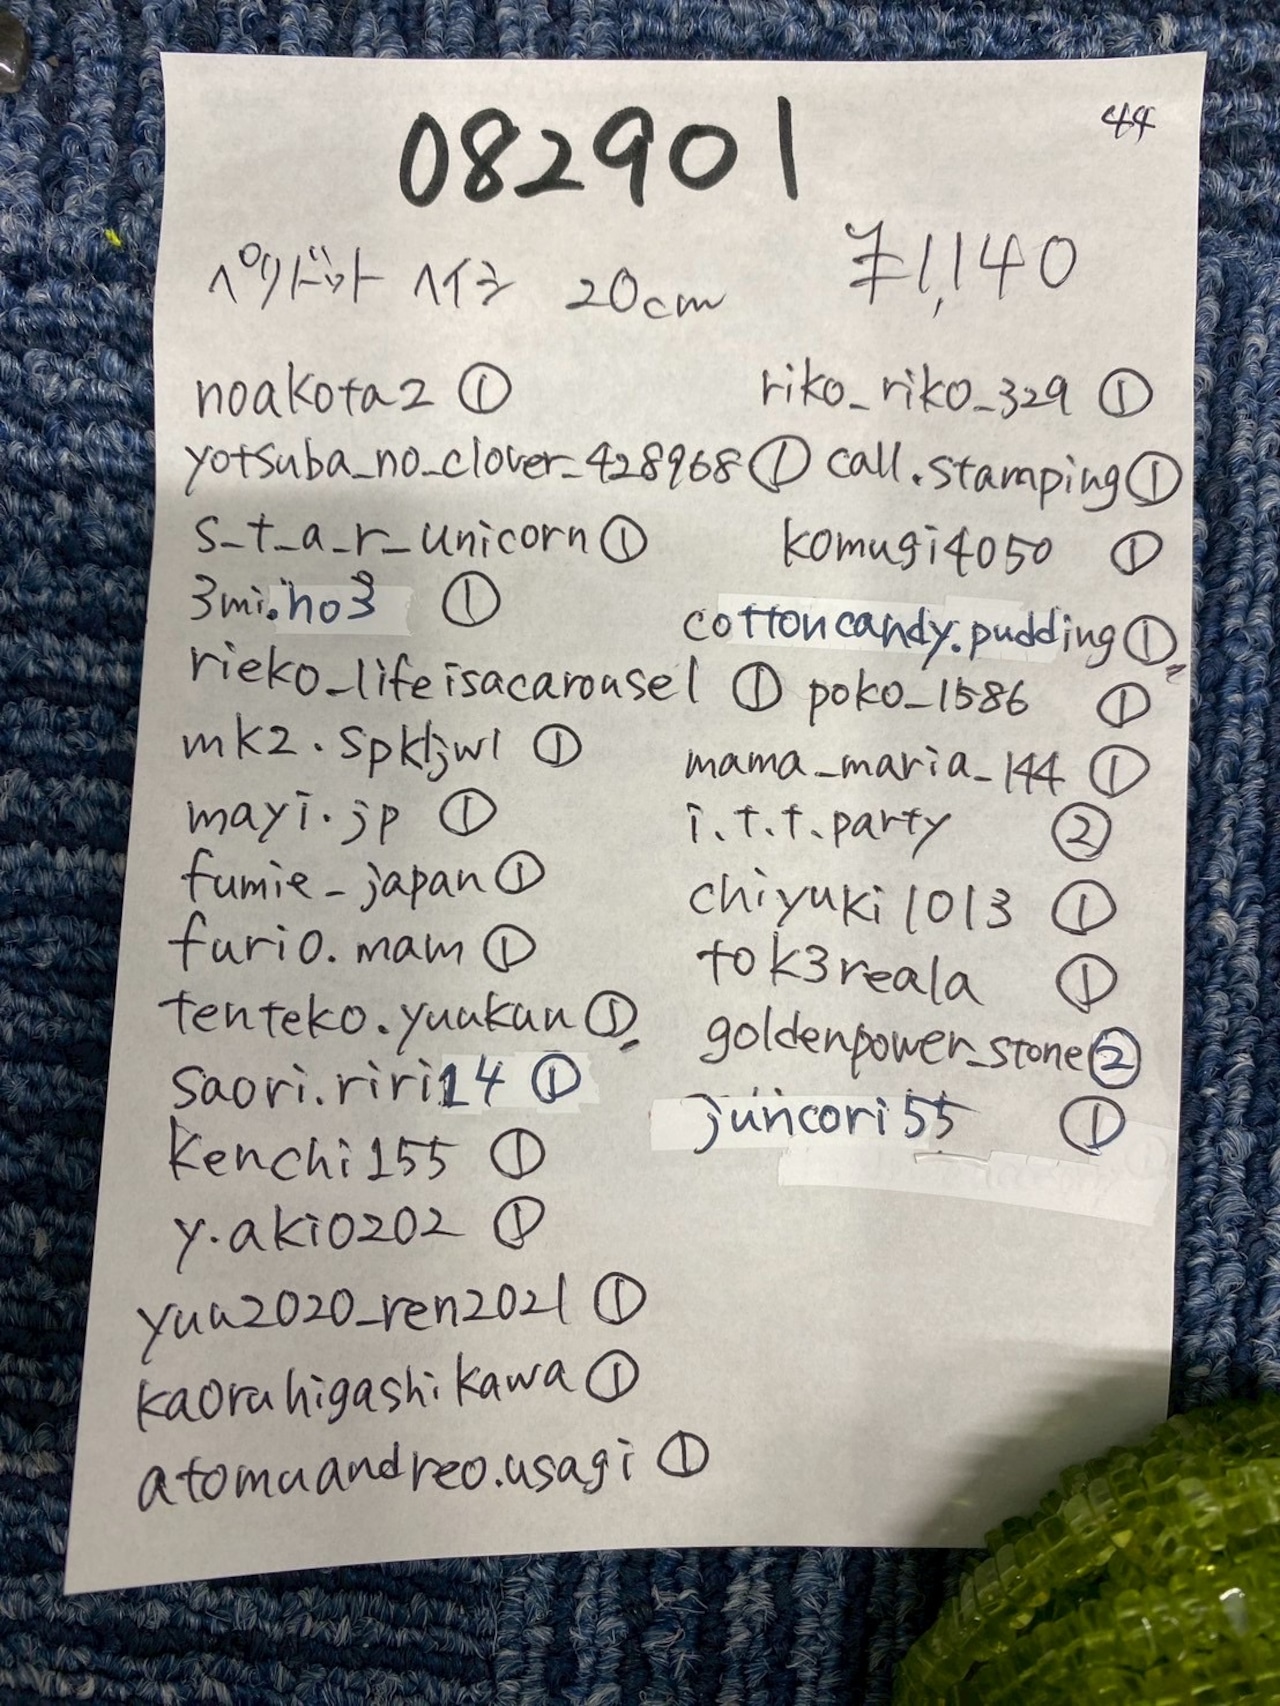 44
082901
ペリドット ヘイシ 20cm ¥1,140
noakota2 ①
yotsuba_no_clover_428968 ①
s_t_a_r_unicorn ①
3mi.ho3 ①
rieko_lifeisacarousel ①
mk2.spkljwl ①
mayi.jp ①
fumie_japan ①
furio.mam ①
tenteko.yuukun ①
saori.riri14 ①
kenchi155 ①
y.aki0202 ①
yuu2020_ren2021 ①
kaoruhigashikawa ①
atomuandreo.usagi ①
riko_riko_329 ①
call.stamping ①
komugi4050 ①
cottoncandy.pudding ①
poko_1586 ①
mama_maria_144 ①
i.t.t.party ②
chiyuki1013 ①
tok3reala ①
goldenpower_stone ②
juncori55 ①